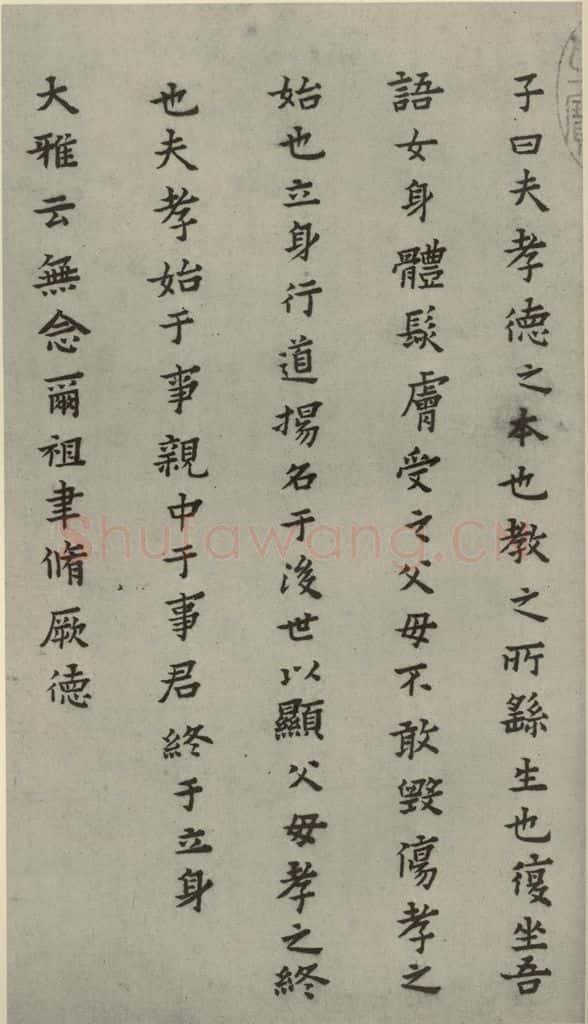 子曰夫孝德之本也教之所繇生也復坐吾
語女身體髮膚受之父母不敢毀傷孝之
始也立身行道揚名于後世以顯父母孝之終
也夫孝始于事親中于事君終于立身
大雅云無念爾祖聿脩厥德
Shufawang.CN